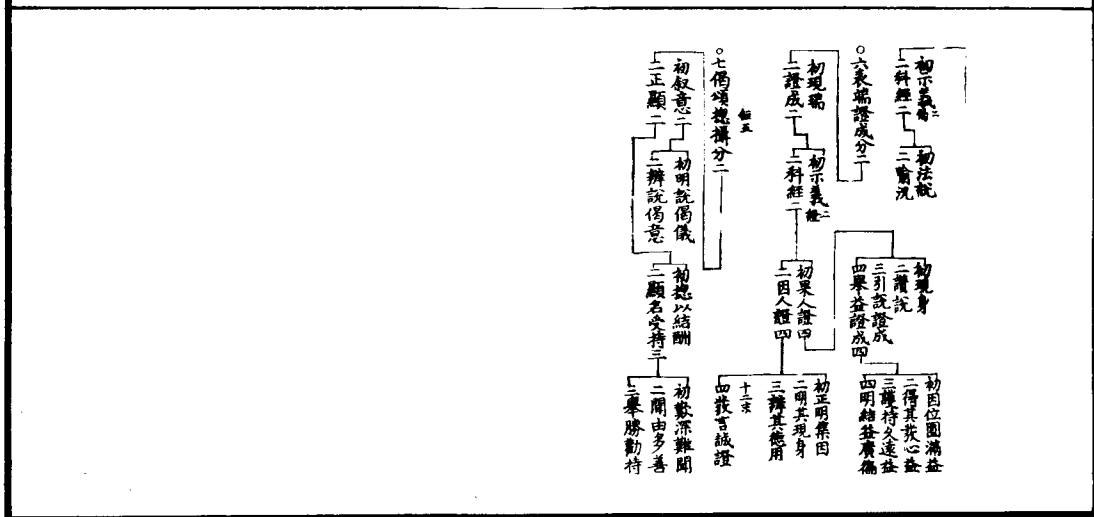 初示義
二科經二
初法說
二喻況
○六表瑞證成分二
初現瑞
二證成二
初示義二
二科經二
初果人證四
二因人證四
初現身
二讚說
三引說證成
四舉益證成四
初因位圓滿益
二得其發心益
三護持久遠益
四明結益廣
初正明集因
二明其現身
三辨其德用
四發言誠證
○七偈頌總攝分二
初叙意二
二正顯二
初明說偈儀
二辨說偈意
初總以結酬
二顯名受持三
初歎深難聞
二聞由多善
三舉勝勸持